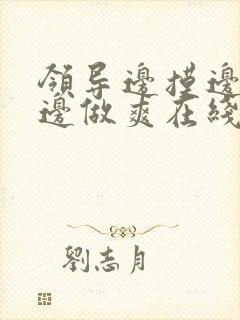 領导邊摸邊
邊做爽在綫
劉志月